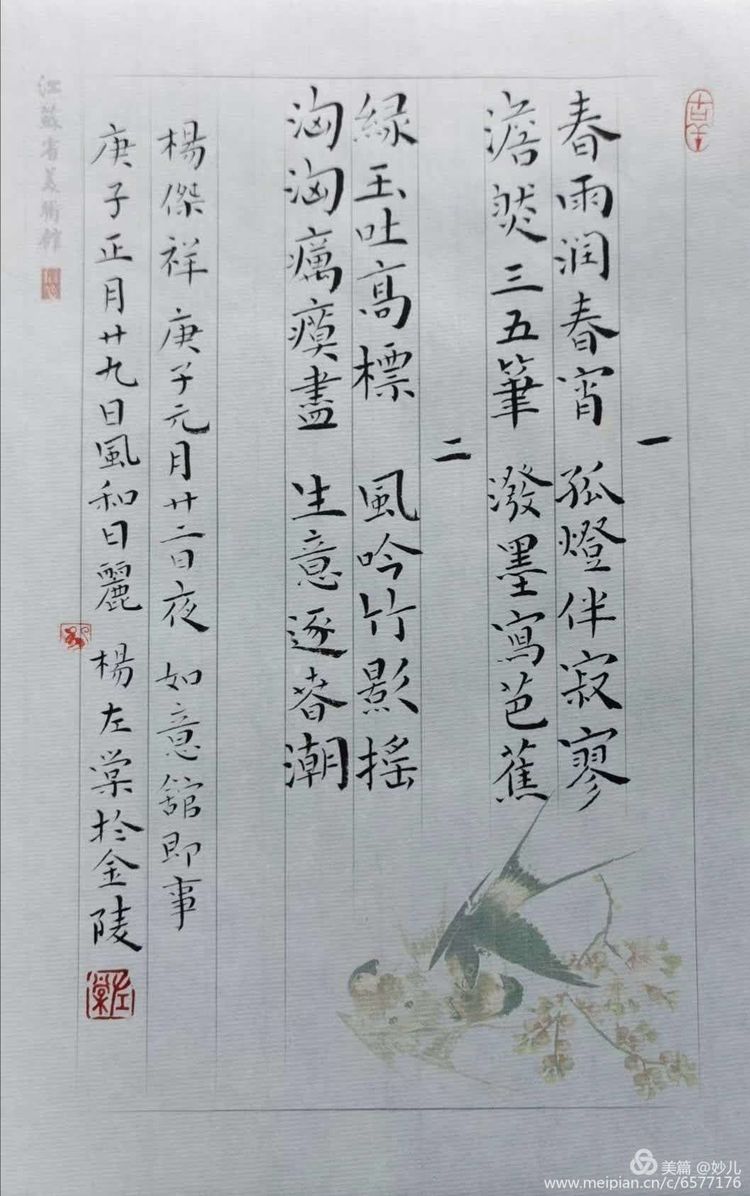 一
春雨润春宵 孤燈伴寂寥
澹然三五筆 潑墨寫芭蕉
二
緑玉吐高標 風吟竹影摇
洶洶癘瘼盡 生意逐春潮
楊傑祥 庚子元月廿二日夜 如意舘即事
庚子正月廿九日風和日麗 楊左棠於金陵
左棠
江蘇省美術館
美篇 @妙儿
www.meipian.cn/c/6577176